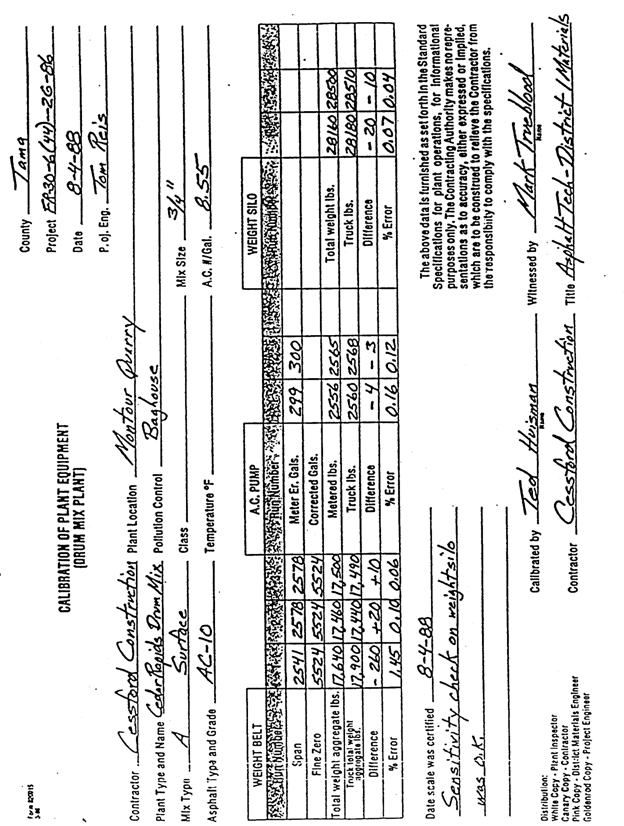 Form 820915
CALIBRATION OF PLANT EQUIPMENT
(DRUM MIX PLANT)
County Tama
Project FR30-6(44)--2G-86
Date 8-4-88
Proj. Eng. Tom Reis
Contractor Cessford Construction Plant Location Montour Quarry
Plant Type and Name Cedar Rapids Drum Mix Pollution Control Baghouse
Mix Type A Surface Class Mix Size 3/4"
Asphalt Type and Grade AC-10 Temperature °F A.C. #/Gal. 8.55
WEIGHT BELT A.C. PUMP WEIGHT SILO
Run Number Run Number
Span 2541 2578 2578 Meter Er. Gals. 299 300
Fine Zero 5524 5524 5524 Corrected Gals.
Total weight aggregate lbs. 17,640 17,460 17,500 Metered lbs. 2556 2565 Total weight lbs. 28160 28500
Truck total weight aggregate lbs. 17,900 17,440 17,490 Truck lbs. 2560 2568 Truck lbs. 28180 28510
Difference -260 +20 +10 Difference -4 -3 Difference -20 -10
% Error 1.45 0.10 0.06 % Error 0.16 0.12 % Error 0.07 0.04
Date scale was certified 8-4-88
Sensitivity check on weight silo
was O.K.
The above data is furnished as set forth in the Standard
Specifications for plant operations, for informational
purposes only. The Contracting Authority makes no repre-
sentations as to accuracy, either expressed or implied,
which are to be construed to relieve the Contractor from
the responsibility to comply with the specifications.
Calibrated by Ted Huisman Witnessed by Mark Trueblood
Name Name
Contractor Cessford Construction Title Asphalt Tech-District 1 Materials
Distribution:
White Copy - Plant Inspector
Canary Copy - Contractor
Pink Copy - District Materials Engineer
Goldenrod Copy - Project Engineer